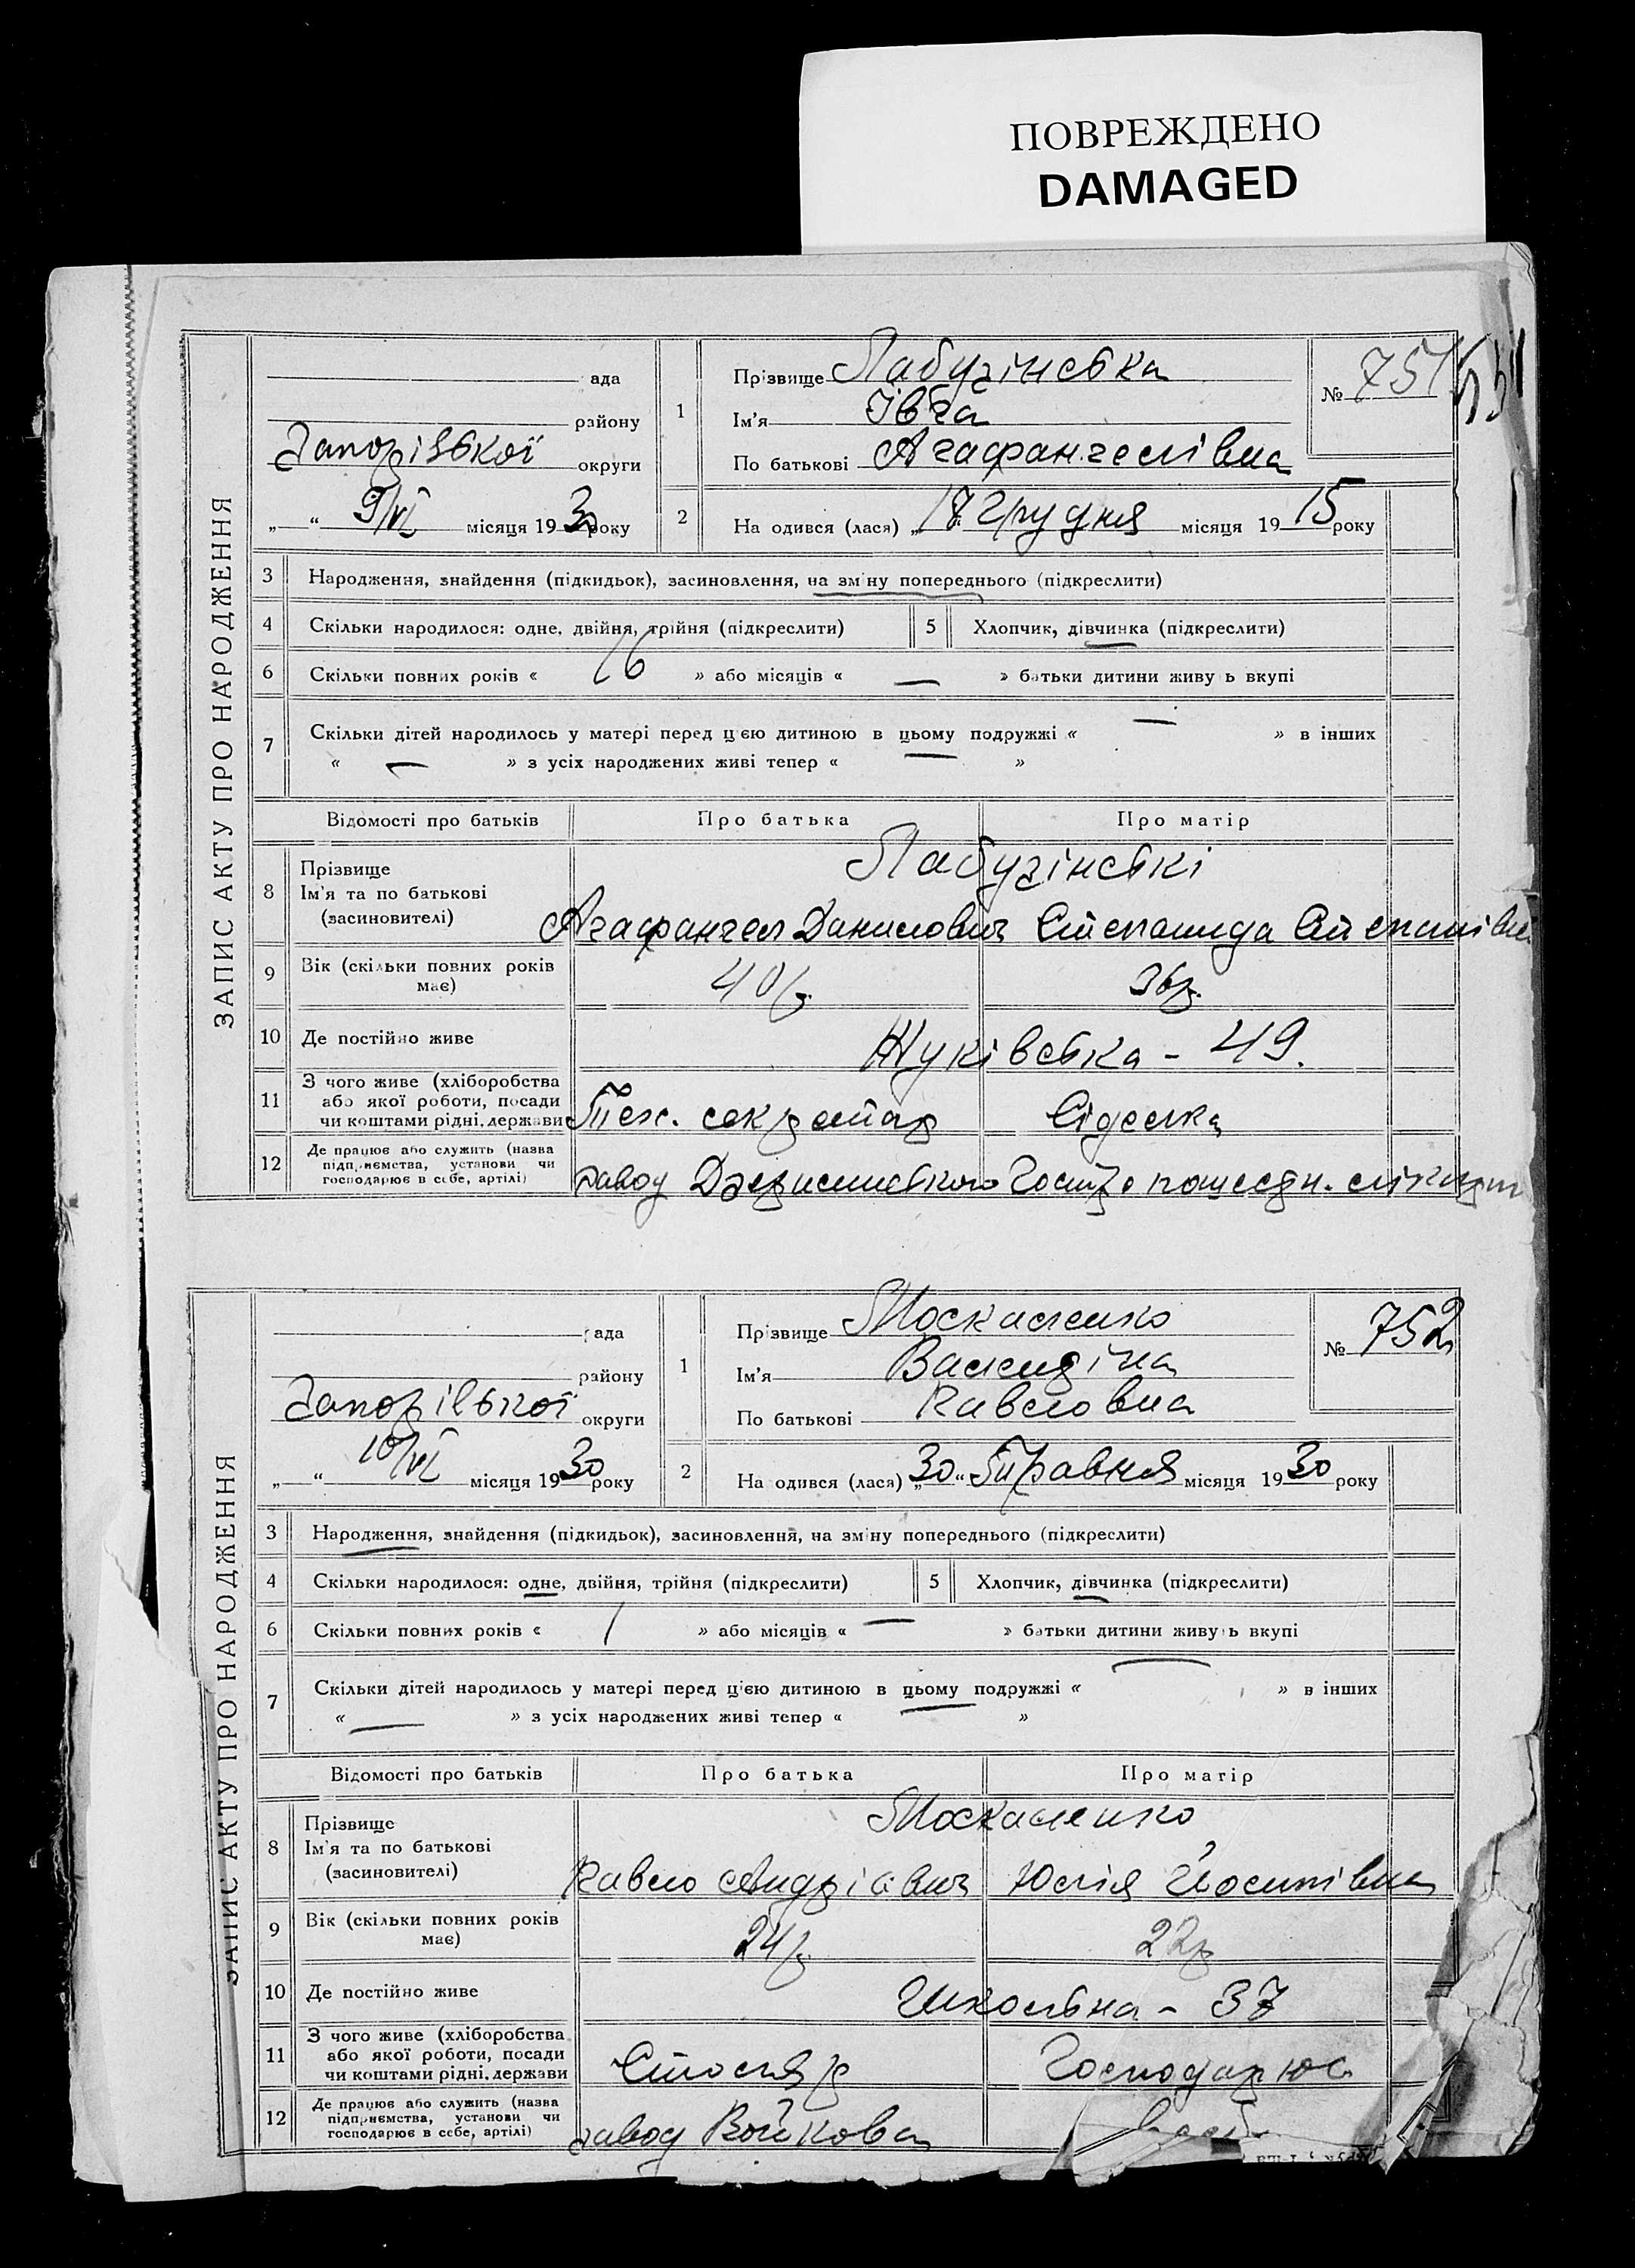 ПОВРЕЖДЕНО
DAMAGED
ЗАПИС АКТУ ПРО НАРОДЖЕННЯ
ада
району
Запорізької округи
„ “ 9/VI місяця 1930 року
1
Прізвище Лабузінська
Ім'я Івга
По батькові Агафангелівна
№ 751
2
На одився (лася) „17 грудня місяця 1915 року
3 Народження, знайдення (підкидьок), засиновлення, на зміну попереднього (підкреслити)
4 Скільки народилося: одне, двійня, трійня (підкреслити) 5 Хлопчик, дівчинка (підкреслити)
6 Скільки повних років « 16 » або місяців « — » батьки дитини живу ь вкупі
7 Скільки дітей народилось у матері перед цією дитиною в цьому подружжі « — » в інших
« — » з усіх народжених живі тепер « — »
Відомості про батьків Про батька Про матір
8 Прізвище Лабузінські
Ім'я та по батькові
(засиновителі) Агафангел Данилович Степанида Степанівна
9 Вік (скільки повних років має) 40 р. 36 р.
10 Де постійно живе Жуківська - 49.
11 З чого живе (хліборобства
або якої роботи, посади
чи коштами рідні, держави Тех. секретар Сіделка
12 Де працює або служить (назва
підприємства, установи чи
господарює в себе, артілі) завод Дзержинського
ЗАПИС АКТУ ПРО НАРОДЖЕННЯ
ада
району
Запорізької округи
„ “ 10/VI місяця 1930 року
1
Прізвище Москаленко
Ім'я Валендіна
По батькові Павловна
№ 752
2
На одився (лася) „30“ Травня місяця 1930 року
3 Народження, знайдення (підкидьок), засиновлення, на зміну попереднього (підкреслити)
4 Скільки народилося: одне, двійня, трійня (підкреслити) 5 Хлопчик, дівчинка (підкреслити)
6 Скільки повних років « 1 » або місяців « — » батьки дитини живу ь вкупі
7 Скільки дітей народилось у матері перед цією дитиною в цьому подружжі « — » в інших
« — » з усіх народжених живі тепер « — »
Відомості про батьків Про батька Про матір
8 Прізвище Москаленко
Ім'я та по батькові
(засиновителі) Павло Андрієвич Юлія Йосипівна
9 Вік (скільки повних років має) 24 р. 22 р
10 Де постійно живе Школьна - 37
11 З чого живе (хліборобства
або якої роботи, посади
чи коштами рідні, держави Столяр Господарює
12 Де працює або служить (назва
підприємства, установи чи
господарює в себе, артілі) завод Войкова